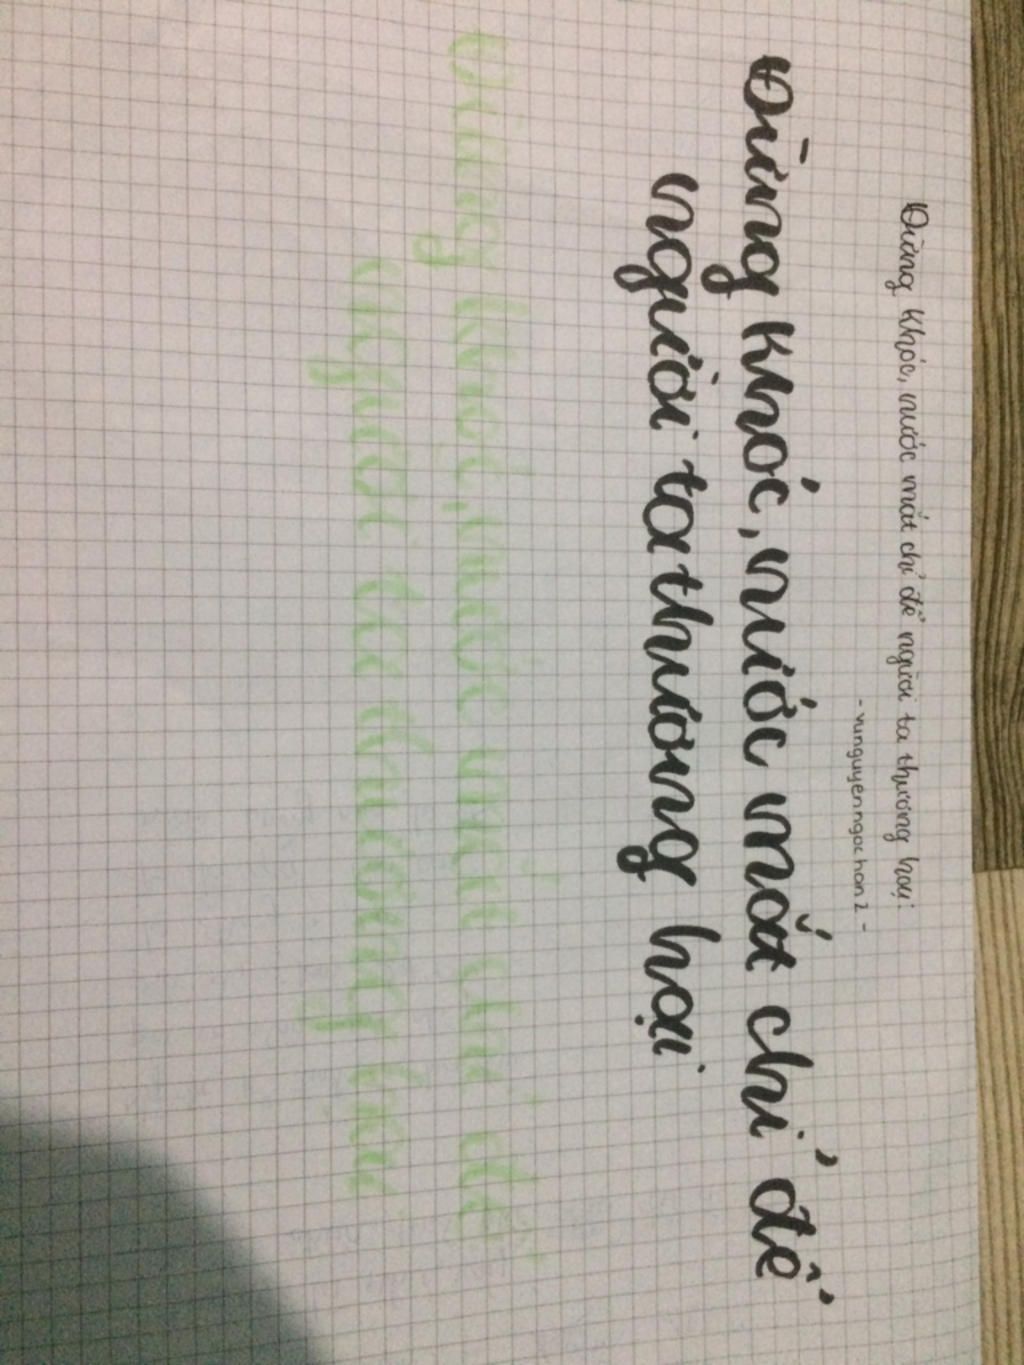 Đừng khóc, nước mắt chỉ để người ta thương hại!
- vunguyenngochan2 -
Đừng khóc, nước mắt chỉ để
người ta thương hại
Đừng khóc, nước mắt chỉ để
người ta thương hại